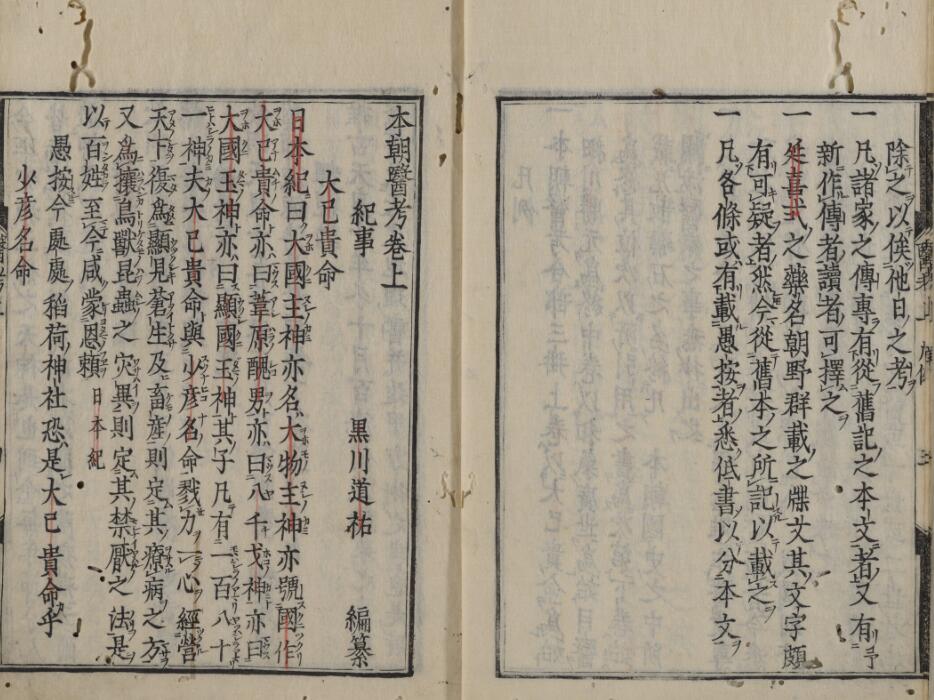 除之以俟他日之考
一 凡諸家之傳專有從舊記之本文者又有予
新作傳者讀者可擇之
一 延喜式之藥名朝野群載之牒文其文字頗
有可疑者然今從舊本之所記以載之
一 凡各條或有載愚按者悉低書以分本文
本朝醫考卷上
黒川道祐 編纂
紀事
大己貴命
日本紀曰大國主神亦名大物主神亦號國作
大己貴命亦曰葦原醜男亦曰八千戈神亦曰
大國玉神亦曰顯國玉神其子凡有一百八十
一神夫大己貴命與少彦名命戮力一心經營
天下復爲顯見蒼生及畜産則定其療病之方
又爲攘鳥獸昆蟲之灾異則定其禁厭之法是
以百姓至今咸蒙恩賴 日本紀
愚按今處處稻荷神社恐是大己貴命乎
少彦名命